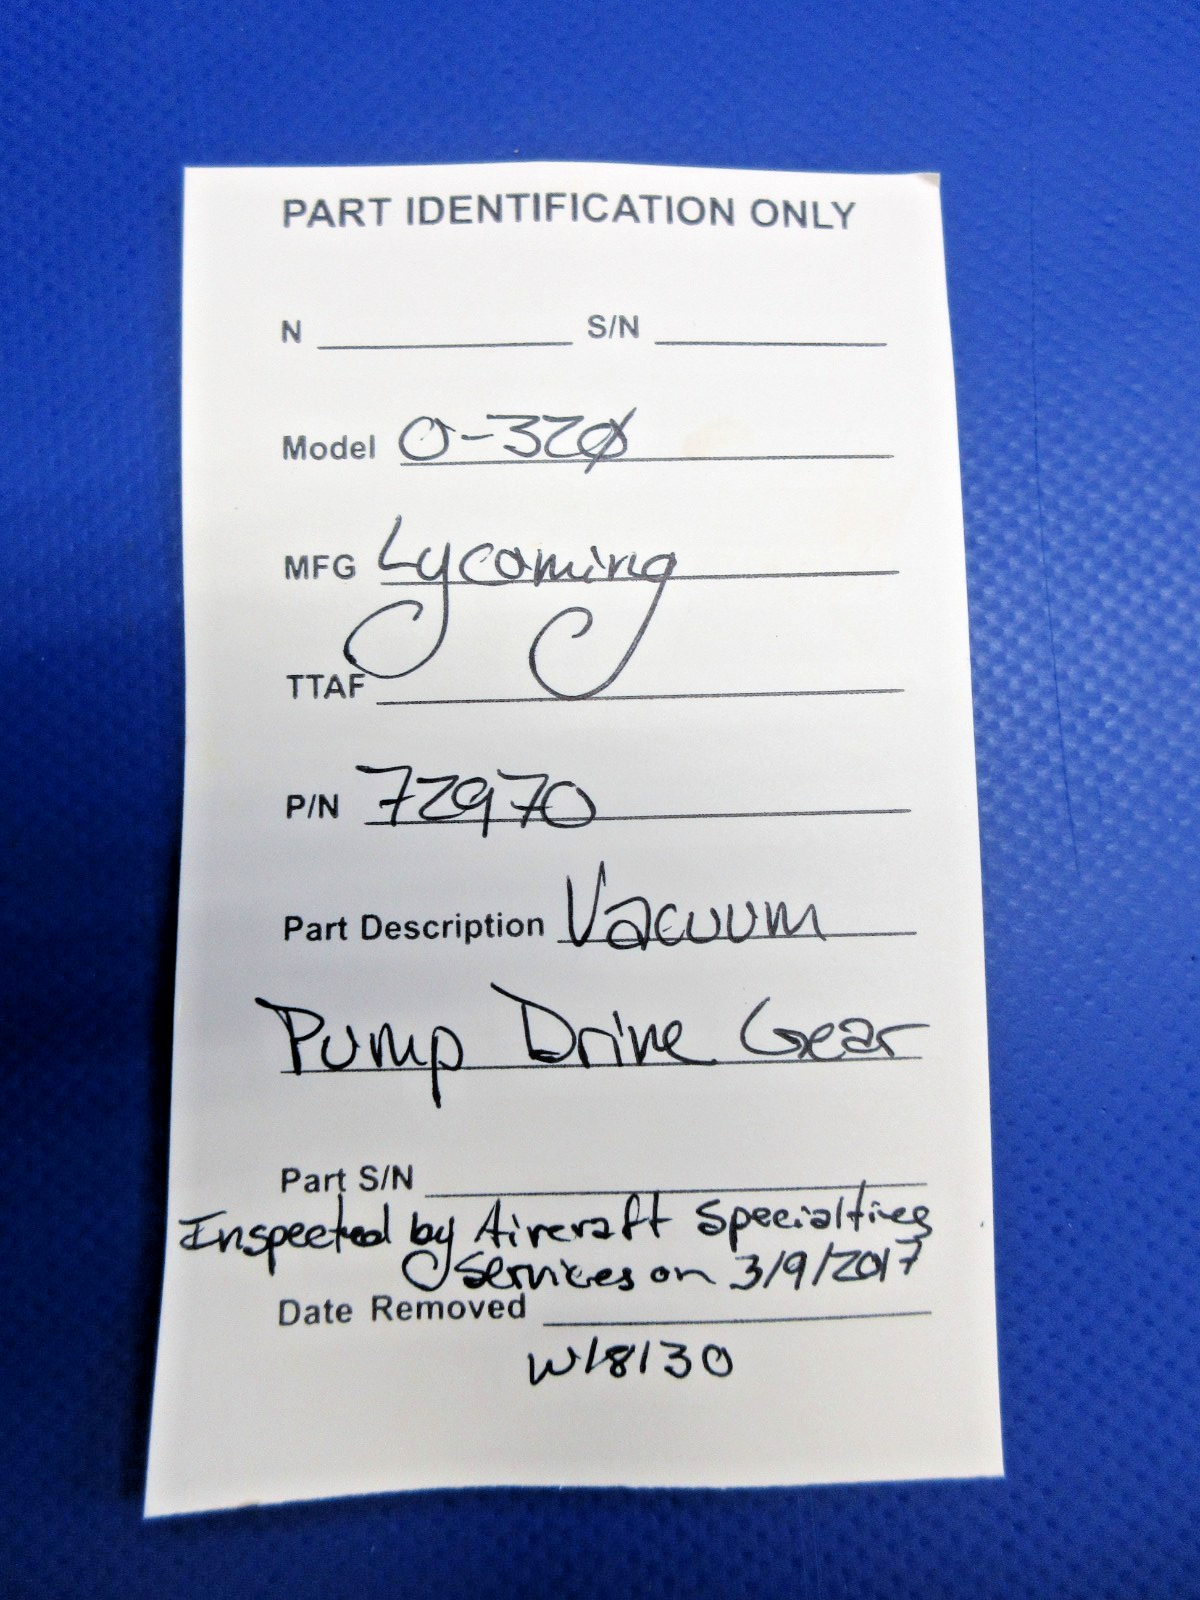 PART IDENTIFICATION ONLY
N S/N
Model O-320
MFG Lycoming
TTAF
P/N 72970
Part Description Vacuum
Pump Drive Gear
Part S/N
Inspected by Aircraft Specialties
Services on 3/9/2017
Date Removed
W/8130